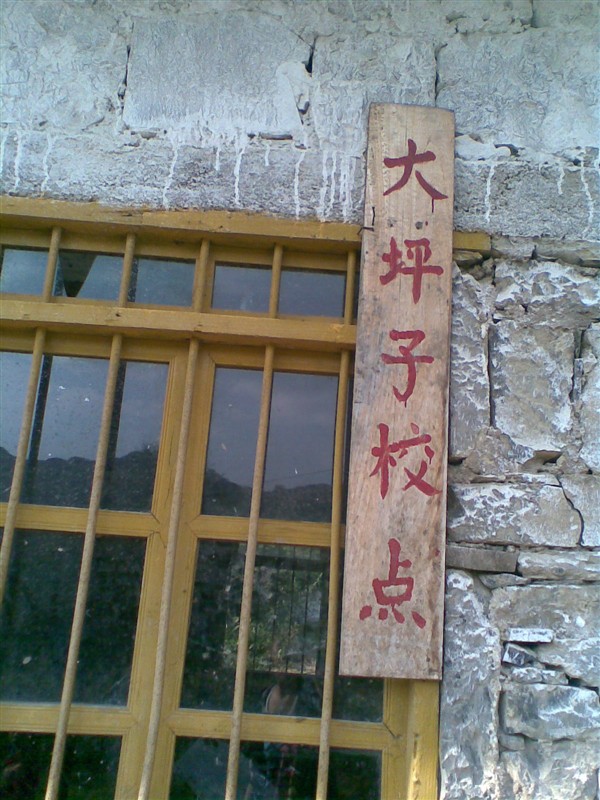 大坪子校点